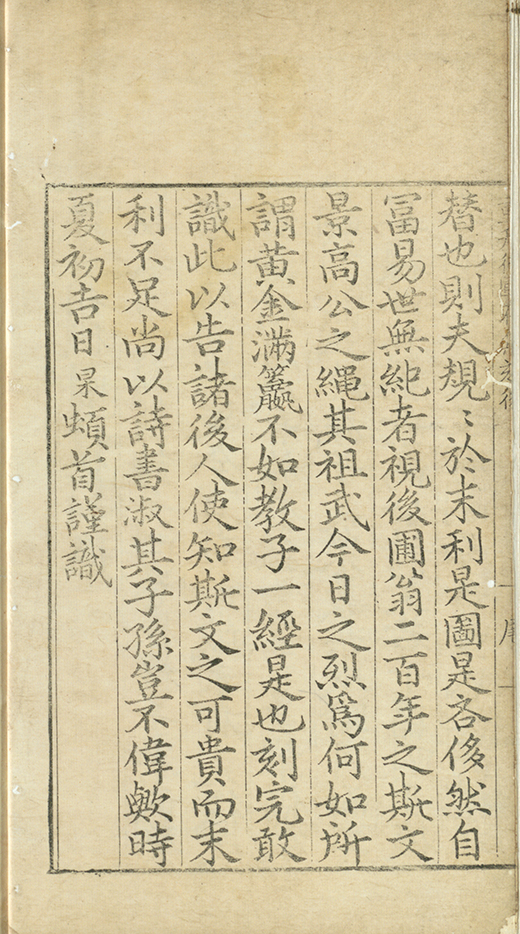 替也則夫規〻於末利是圖是吝侈然自
冨易世無紀者視後圃翁二百年之斯文
景高公之繩其祖武今日之烈爲何如所
謂黄金滿籯不如教子一經是也刻完敢
識此以告諸後人使知斯文之可貴而末
利不足尚以詩書淑其子孫豈不偉歟時
夏初吉日杲頓首謹識